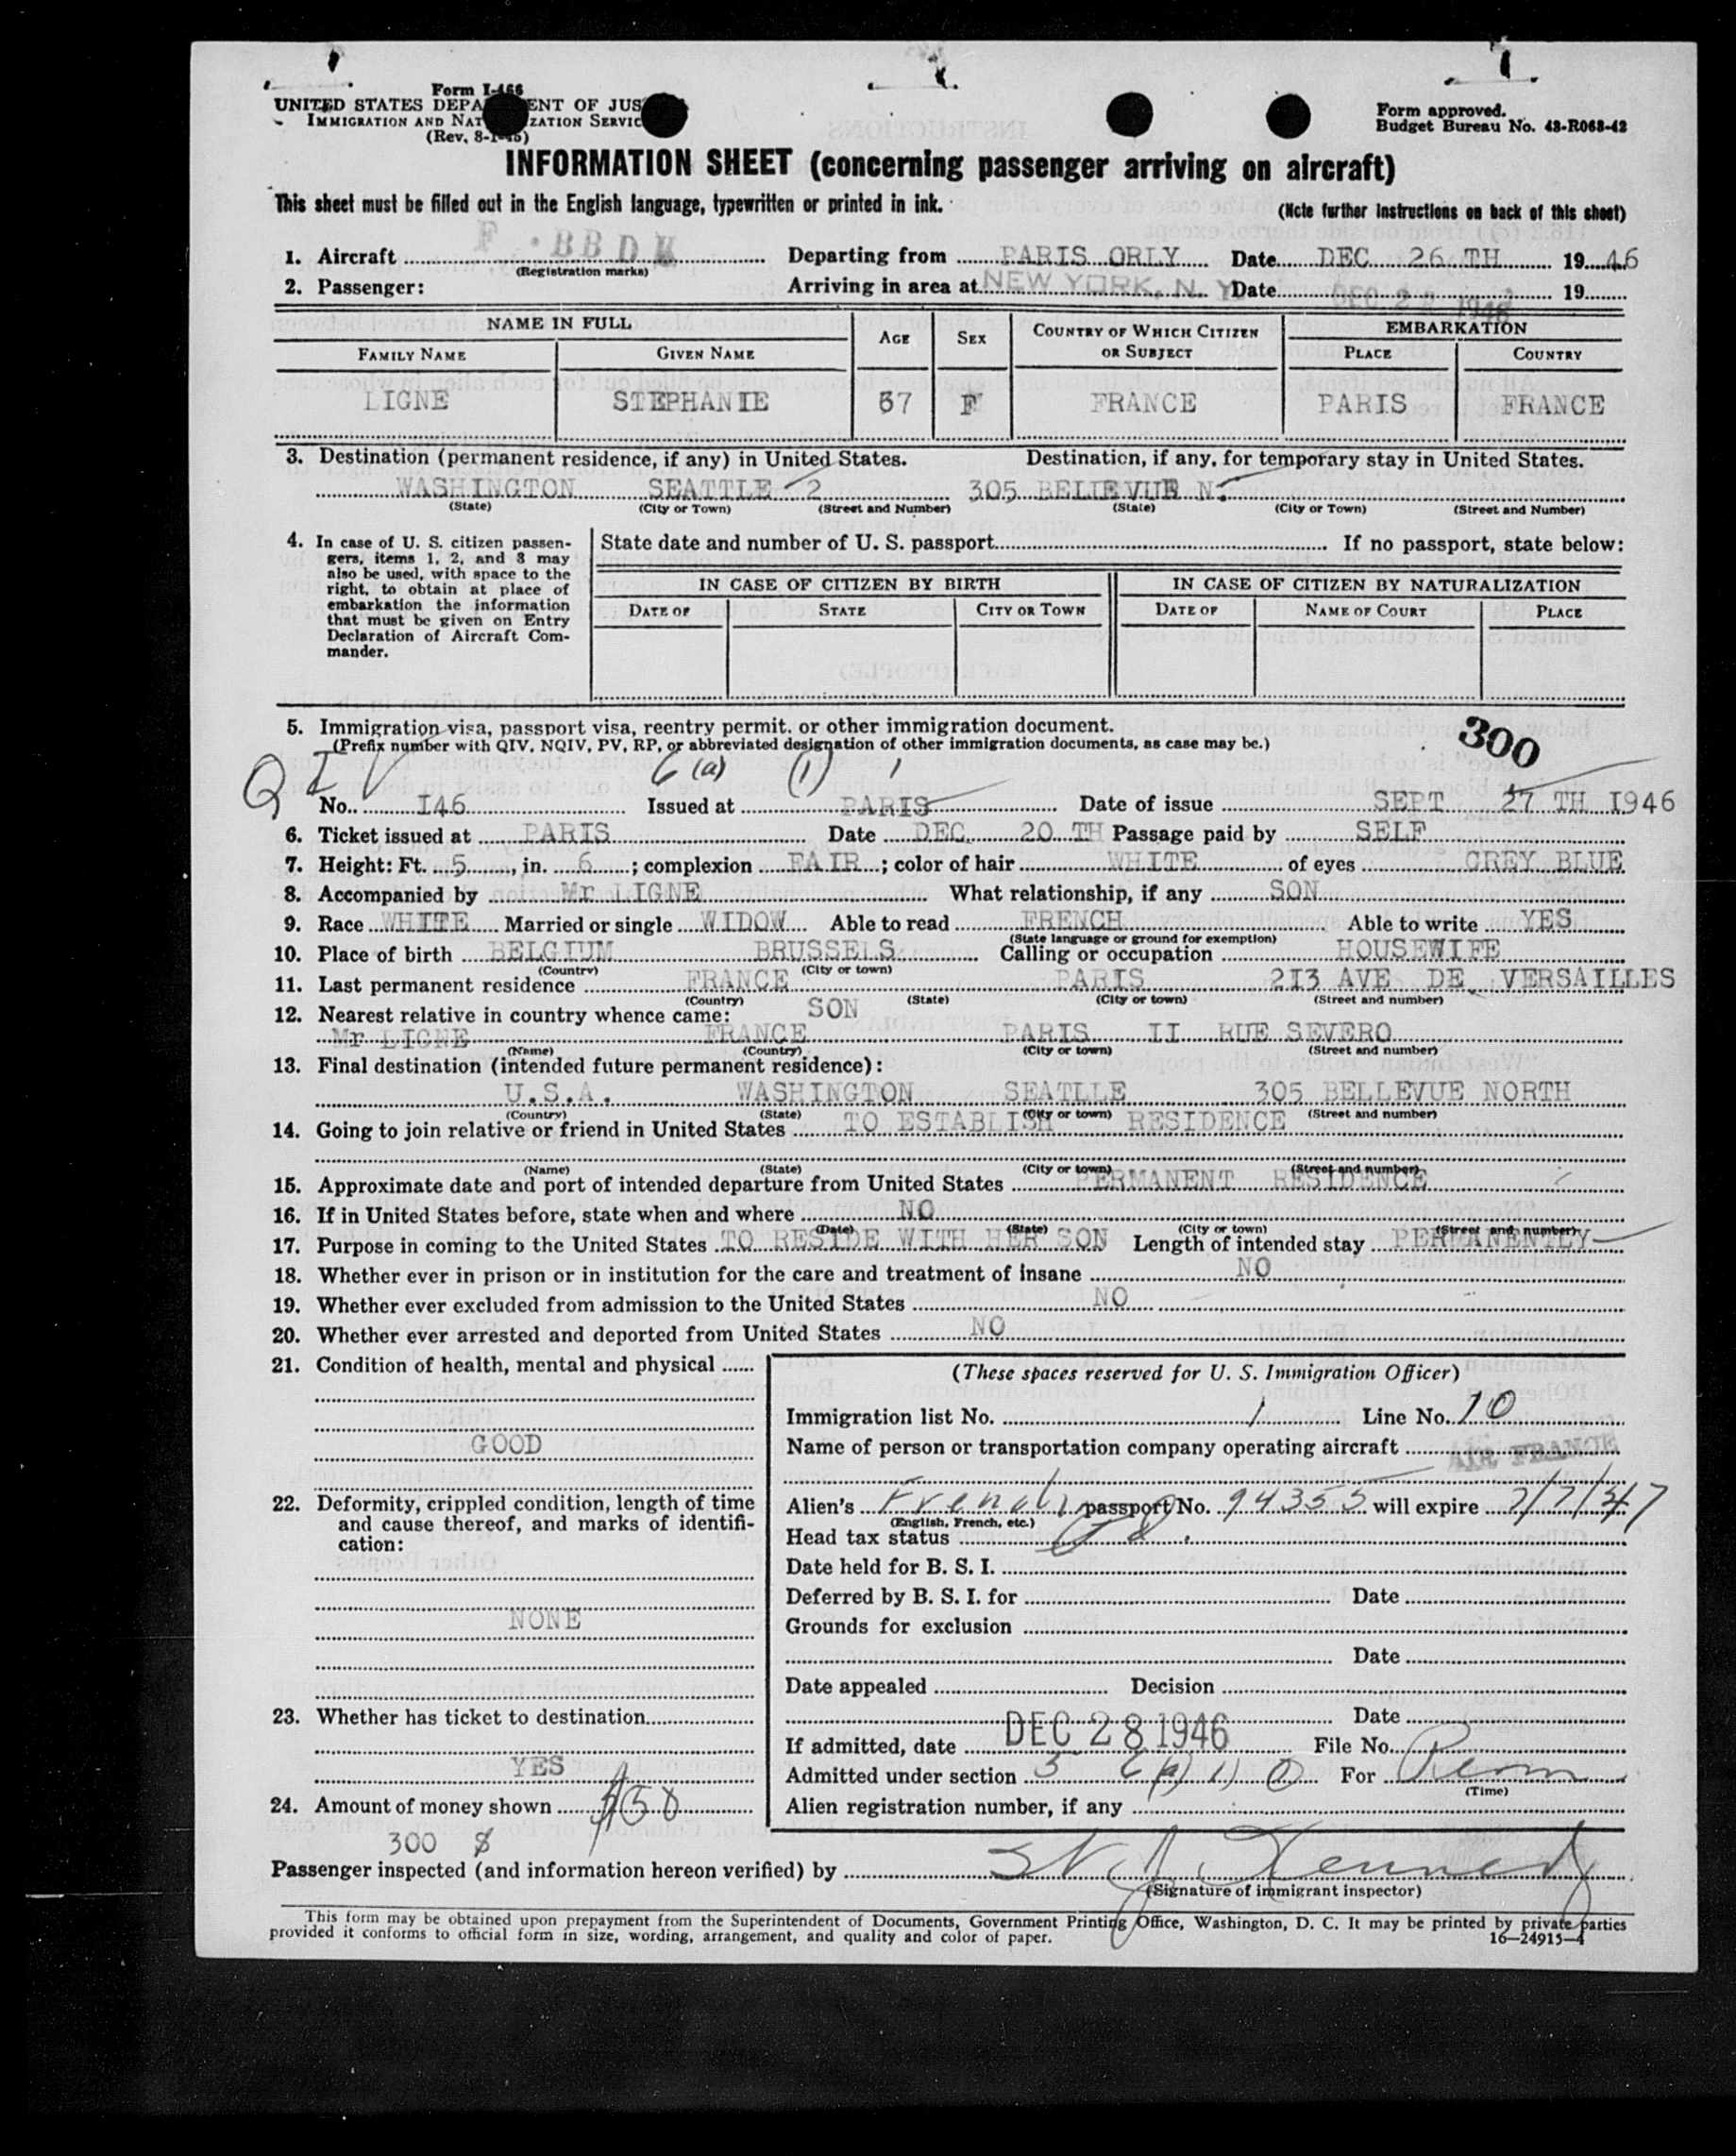 Form I-466
UNITED STATES DEPA ENT OF JUS
IMMIGRATION AND NAT ZATION SERVIC
(Rev. 8-1-45)
Form approved.
Budget Bureau No. 43-R068-42
INFORMATION SHEET (concerning passenger arriving on aircraft)
This sheet must be filled out in the English language, typewritten or printed in ink.
(Note further instructions on back of this sheet)
1. Aircraft F.BBDM Departing from PARIS ORLY Date DEC 26 TH 1946
(Registration marks)
2. Passenger: Arriving in area at NEW YORK, N. Y. Date DEC 1946 19
NAME IN FULL AGE SEX COUNTRY OF WHICH CITIZEN OR SUBJECT EMBARKATION
FAMILY NAME GIVEN NAME PLACE COUNTRY
LIGNE STEPHANIE 67 F FRANCE PARIS FRANCE
3. Destination (permanent residence, if any) in United States. Destination, if any, for temporary stay in United States.
WASHINGTON SEATTLE 2 305 BELLEVUE N.
(State) (City or Town) (Street and Number) (State) (City or Town) (Street and Number)
4. In case of U. S. citizen passen-
gers, items 1, 2, and 3 may
also be used, with space to the
right, to obtain at place of
embarkation the information
that must be given on Entry
Declaration of Aircraft Com-
mander.
State date and number of U. S. passport If no passport, state below:
IN CASE OF CITIZEN BY BIRTH IN CASE OF CITIZEN BY NATURALIZATION
DATE OF STATE CITY OR TOWN DATE OF NAME OF COURT PLACE
5. Immigration visa, passport visa, reentry permit, or other immigration document.
(Prefix number with QIV, NQIV, PV, RP, or abbreviated designation of other immigration documents, as case may be.)
300
QIV 6 (a) (1)
No. I46 Issued at PARIS Date of issue SEPT 27 TH I946
6. Ticket issued at PARIS Date DEC. 20 TH Passage paid by SELF
7. Height: Ft. 5, in. 6; complexion FAIR; color of hair WHITE of eyes GREY BLUE
8. Accompanied by Mr LIGNE What relationship, if any SON
9. Race WHITE Married or single WIDOW Able to read FRENCH Able to write YES
(State language or ground for exemption)
10. Place of birth BELGIUM BRUSSELS Calling or occupation HOUSEWIFE
(Country) (City or town)
11. Last permanent residence FRANCE PARIS 2I3 AVE DE VERSAILLES
(Country) (State) (City or town) (Street and number)
12. Nearest relative in country whence came: SON
Mr LIGNE FRANCE PARIS II RUE SEVERO
(Name) (Country) (City or town) (Street and number)
13. Final destination (intended future permanent residence):
U.S.A. WASHINGTON SEATLLE 305 BELLEVUE NORTH
(Country) (State) (City or town) (Street and number)
14. Going to join relative or friend in United States TO ESTABLISH RESIDENCE
(Name) (State) (City or town) (Street and number)
15. Approximate date and port of intended departure from United States PERMANENT RESIDENCE
16. If in United States before, state when and where NO
(Date) (State) (City or town) (Street and number)
17. Purpose in coming to the United States TO RESIDE WITH HER SON Length of intended stay PERMANENTLY
18. Whether ever in prison or in institution for the care and treatment of insane NO
19. Whether ever excluded from admission to the United States NO
20. Whether ever arrested and deported from United States NO
21. Condition of health, mental and physical
GOOD
22. Deformity, crippled condition, length of time
and cause thereof, and marks of identifi-
cation:
NONE
23. Whether has ticket to destination
YES
24. Amount of money shown $50
300 $
(These spaces reserved for U. S. Immigration Officer)
Immigration list No. 1 Line No. 10
Name of person or transportation company operating aircraft AIR FRANCE
Alien's French passport No. 94355 will expire 7/7/47
(English, French, etc.)
Head tax status
Date held for B. S. I.
Deferred by B. S. I. for Date
Grounds for exclusion
Date
Date appealed Decision
Date
If admitted, date DEC 28 1946 File No.
Admitted under section 5 6(a)(1) For Perm
(Time)
Alien registration number, if any
Passenger inspected (and information hereon verified) by Kennedy
(Signature of immigrant inspector)
This form may be obtained upon prepayment from the Superintendent of Documents, Government Printing Office, Washington, D. C. It may be printed by private parties
provided it conforms to official form in size, wording, arrangement, and quality and color of paper.
16—24915-1